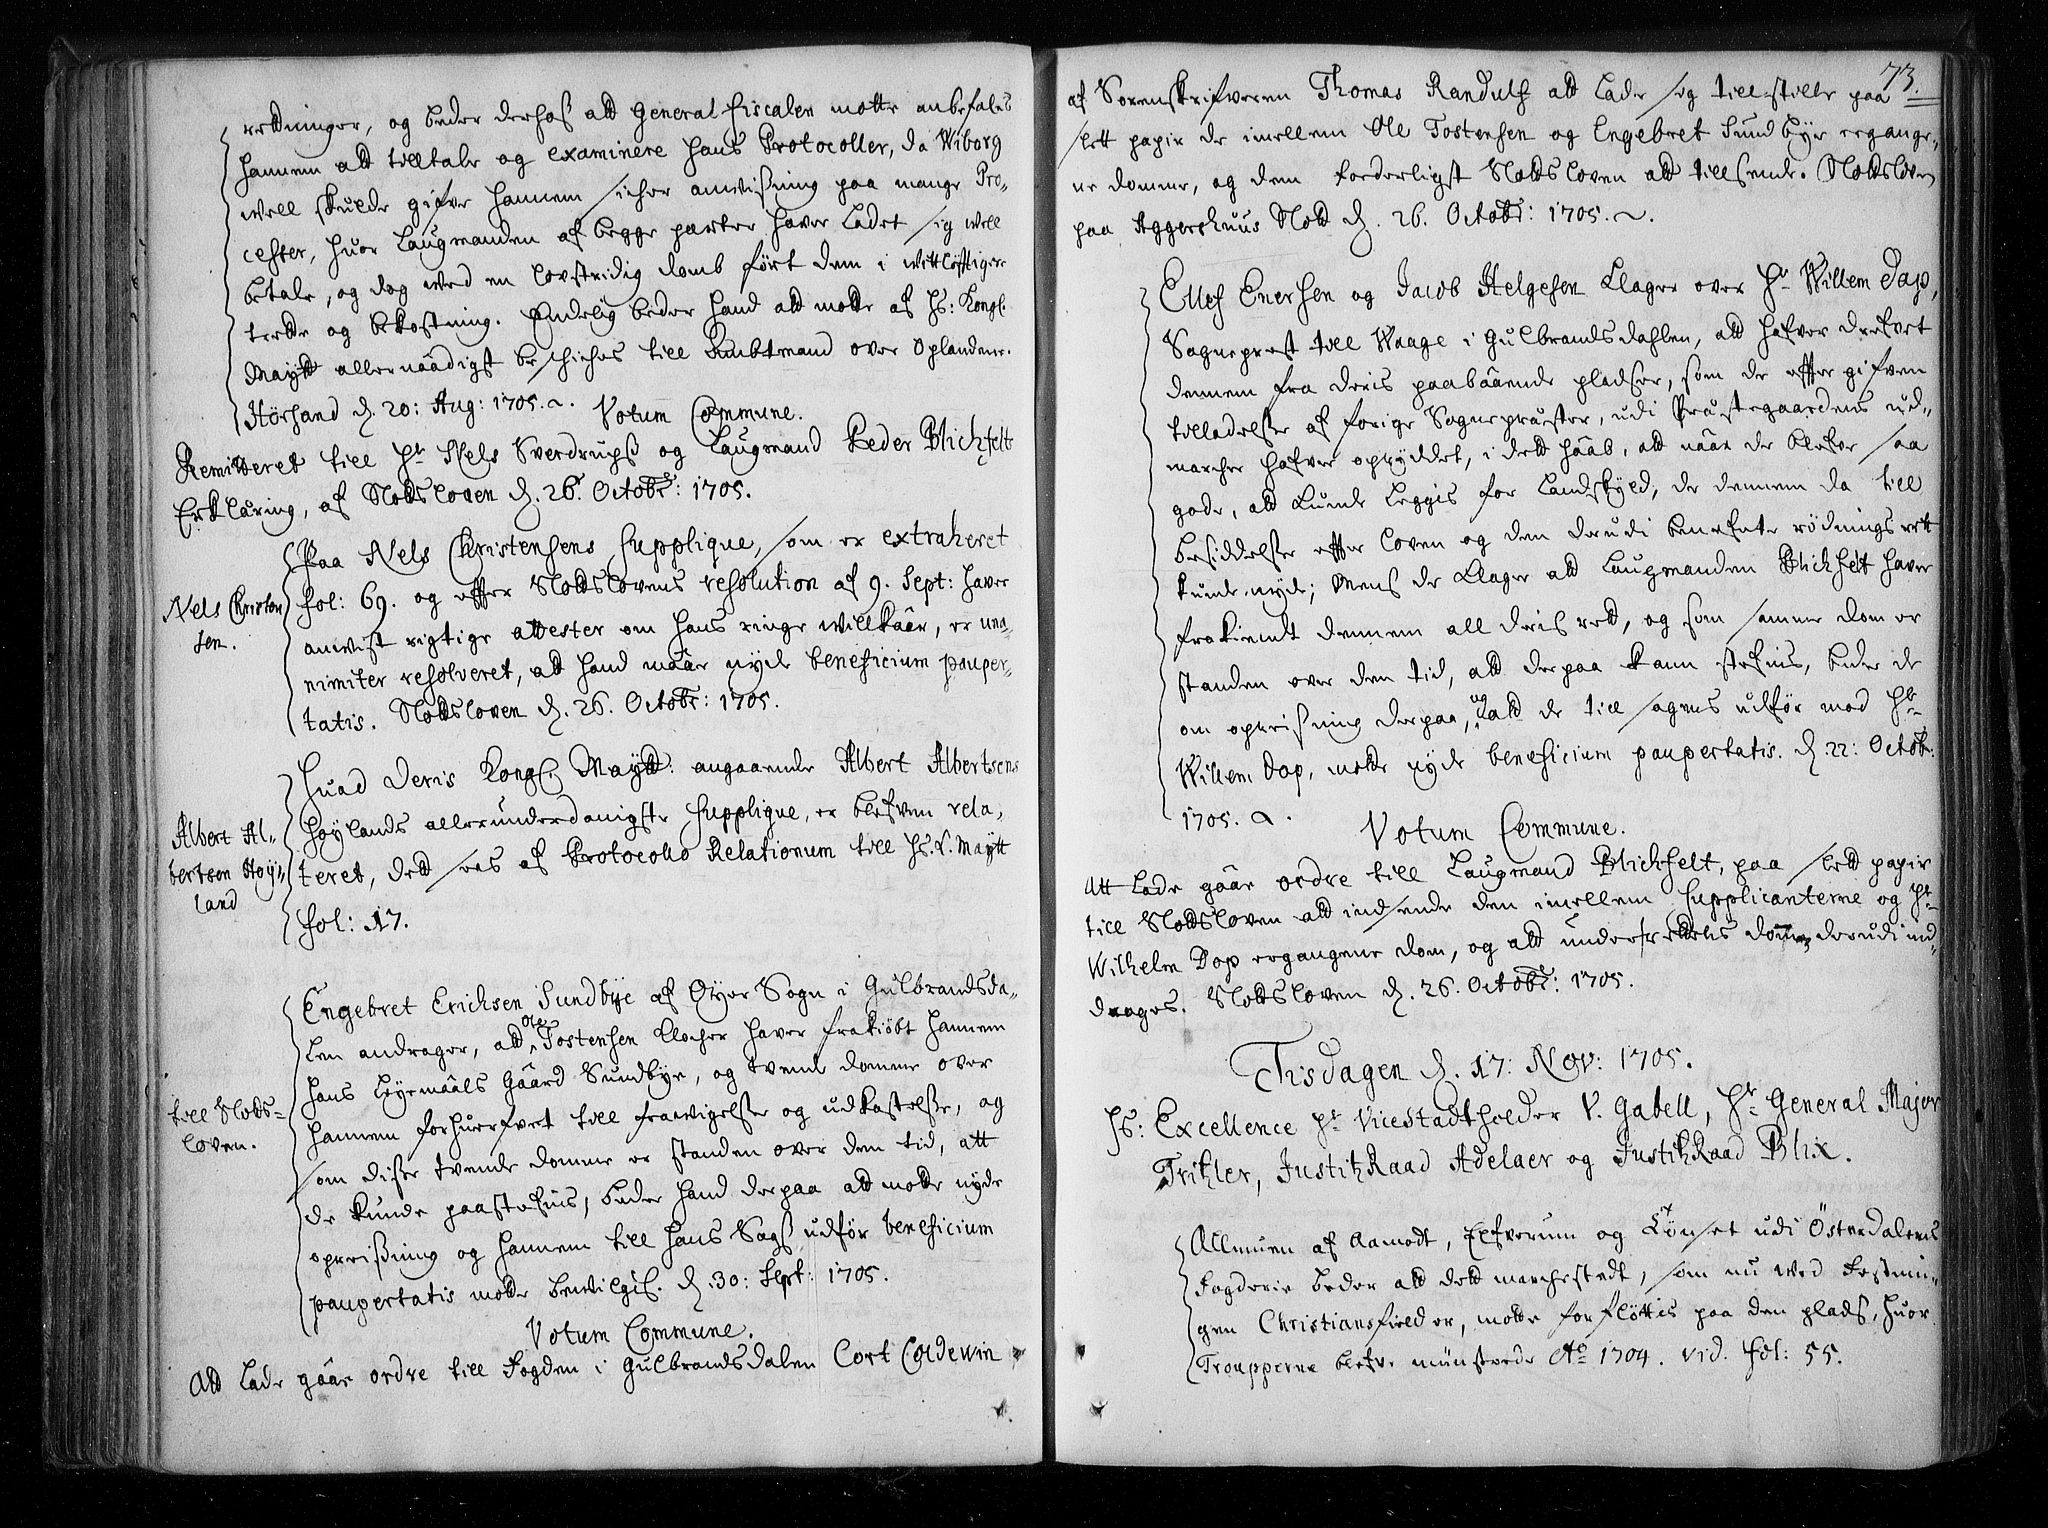 rettninger, og beder derhos att General fiscalen motte anbefales
hannem att tilltale og examinere hans Protocoller, da Wiborg
well skulde gifve hannem sicher anwisning paa mange Pro-
cesser, huor Laugmanden af begge parter haver ladet sig well
betale, og dog wed en lovstridig domb ført dem i wittløftigere
trette og bekostning. Endelig beder hand att motte af Hs: Kongl:
Maytt allernaadigst beschiches till Ambtmand over Oplandene.
Hörsand d. 20: Aug: 1705.
Votum Commune.
Remitteret till Hr Nels Sverdrups og Laugmand Peder Blichfelt
Erklæring, af Slottsloven d. 26. Octobr: 1705.
Nels Christen
sen.
Paa Nels Christensens Supplique, som er extraheret
fol: 69. og effter Slottslovens resolution af 9. Sept: haver
anwist rigtige attester om hans ringe willkaar, er una-
nimiter resolveret, att hand maa nyde beneficium pauper-
tatis. Slottsloven d. 26. Octobr: 1705.
Albert Al-
bertsen Høy-
land
Huad Deris Kongl. Maytt: angaaende Albert Albertsens
Høylands allerunderdanigste Supplique, er blefven rela-
teret, dett sees af Protocollo Relationum till Hs. K. Maytt
fol: 17.
till Slotts-
loven.
Engebret Erichsen Sundbye af Øyer Sogn i Gulbrandsda-
len andrager, att Ole Tostensen Klocher haver frakiøbt hannem
hans Leyemaals Gaard Sundbye, og tvende domme over
hannem forhuerfvet till frawigelse og udkastelse, og
som disse tvende domme er standen over den tid, att
de kunde paastefnis, beder hand derpaa att motte nyde
opreisning og hannem till hans Sags udfør beneficium
paupertatis motte bewilgis. d. 30: Sept: 1705.
Votum Commune.
Att lade gaae ordre till Fogden i Gulbrandsdalen Cort Coldewin
73.
af Sorenskrifveren Thomas Randulf att lade sig tillstille paa
slett papir de imellem Ole Tostensen og Engebret Sundbye ergange-
ne domme, og dem forderligst Slottsloven att tillsende. Slottsloven
paa Aggershuus Slott d. 26. Octobr: 1705.
Ellef Enersen og Jacob Helgesen klager over Hr Willem Dop,
Sogneprest till Waage i Gulbrandsdahlen, att hafver drefvet
dennem fra deris paaboende pladser, som de effter gifven
tilladelse af forige Sogneprester, udi Præstegaardens ud-
marcher hafver opryddet, i dett haab, att naar de blefve saa
gode, att kunde leggis for Landskyld, de dennem da till
besiddelse effter loven og den derudi benefnte rødnings rett
kunde nyde; Mens de klager att Laugmanden Blichfelt haver
frakiendt dennem all deris rett, og som samme dom er
standen over den tid, att derpaa kan stefnis, beder de
om opreisning derpaa, og att de till sagens udfør mod Hr
Willem Dop, motte nyde beneficium paupertatis. d. 22: Octobr:
1705.
Votum Commune.
Att lade gaae ordre till Laugmand Blichfelt, paa slett papir
till Slottsloven att indsende den imellem Supplicanterne og Hr
Wilhelm Dop ergangene dom, og att underrettes derudi ind-
drages. Slottsloven d. 26. Octobr: 1705.
Tisdagen d. 17: Nov: 1705.
Hs: Excellence Hr Vicestadtholder V. Gabell, Hr General Major
Trikler, Justitz Raad Adelaer og Justitz Raad Blix.
Allmuen af Aamodt, Elfverum og Lønset udi Österdalens
Fogderie beder att dett marchestedt, som nu wed Festnin-
gen Christiansfield er, motte forfløttis paa den plads, huor
Troupperne blefve mùnstrede Ao 1704. vid. fol: 55.